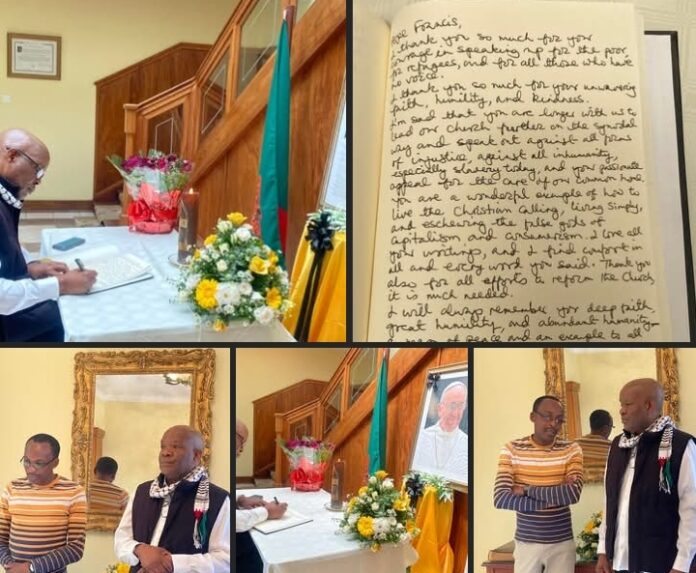 Pope Francis,
I thank you so much for your
courage in speaking up for the poor,
for refugees, and for all those who have
no voice.
I thank you so much for your unwavering
faith, humility, and kindness.
I'm sad that you are longer with us to
lead our Church further on the synodal
way and speak out against all forms
of injustice, against all inhumanity,
especially slavery today, and your passionate
appeal for the care of our common home.
You are a wonderful example of how to
live the Christian calling, living simply,
and eschewing the false gods of
Capitalism and consumerism. I love all
your writings, and I find comfort in
all and every word you said. Thank you
also for all efforts to reform the Church,
it is much needed.
I will always remember your deep faith,
great humility, and abundant humanity –
a man of peace and an example to all